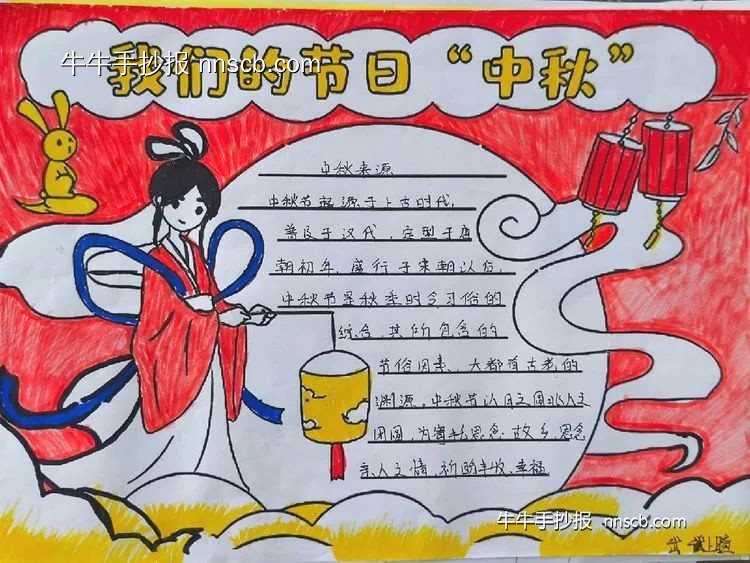 我们的节日“中秋”
牛牛手抄报 nnscb.com
中秋来源
中秋节起源于上古时代，
普及于汉代，定型于唐
朝初年，盛行于宋朝以后，
中秋节是秋季时令习俗的
综合，其所包含的
节俗因素，大都有古老的
渊源，中秋节以月之圆兆人之
团圆，为寄托思念故乡，思念
亲人之情，祈盼丰收、幸福
牛牛手抄报 nnscb.com